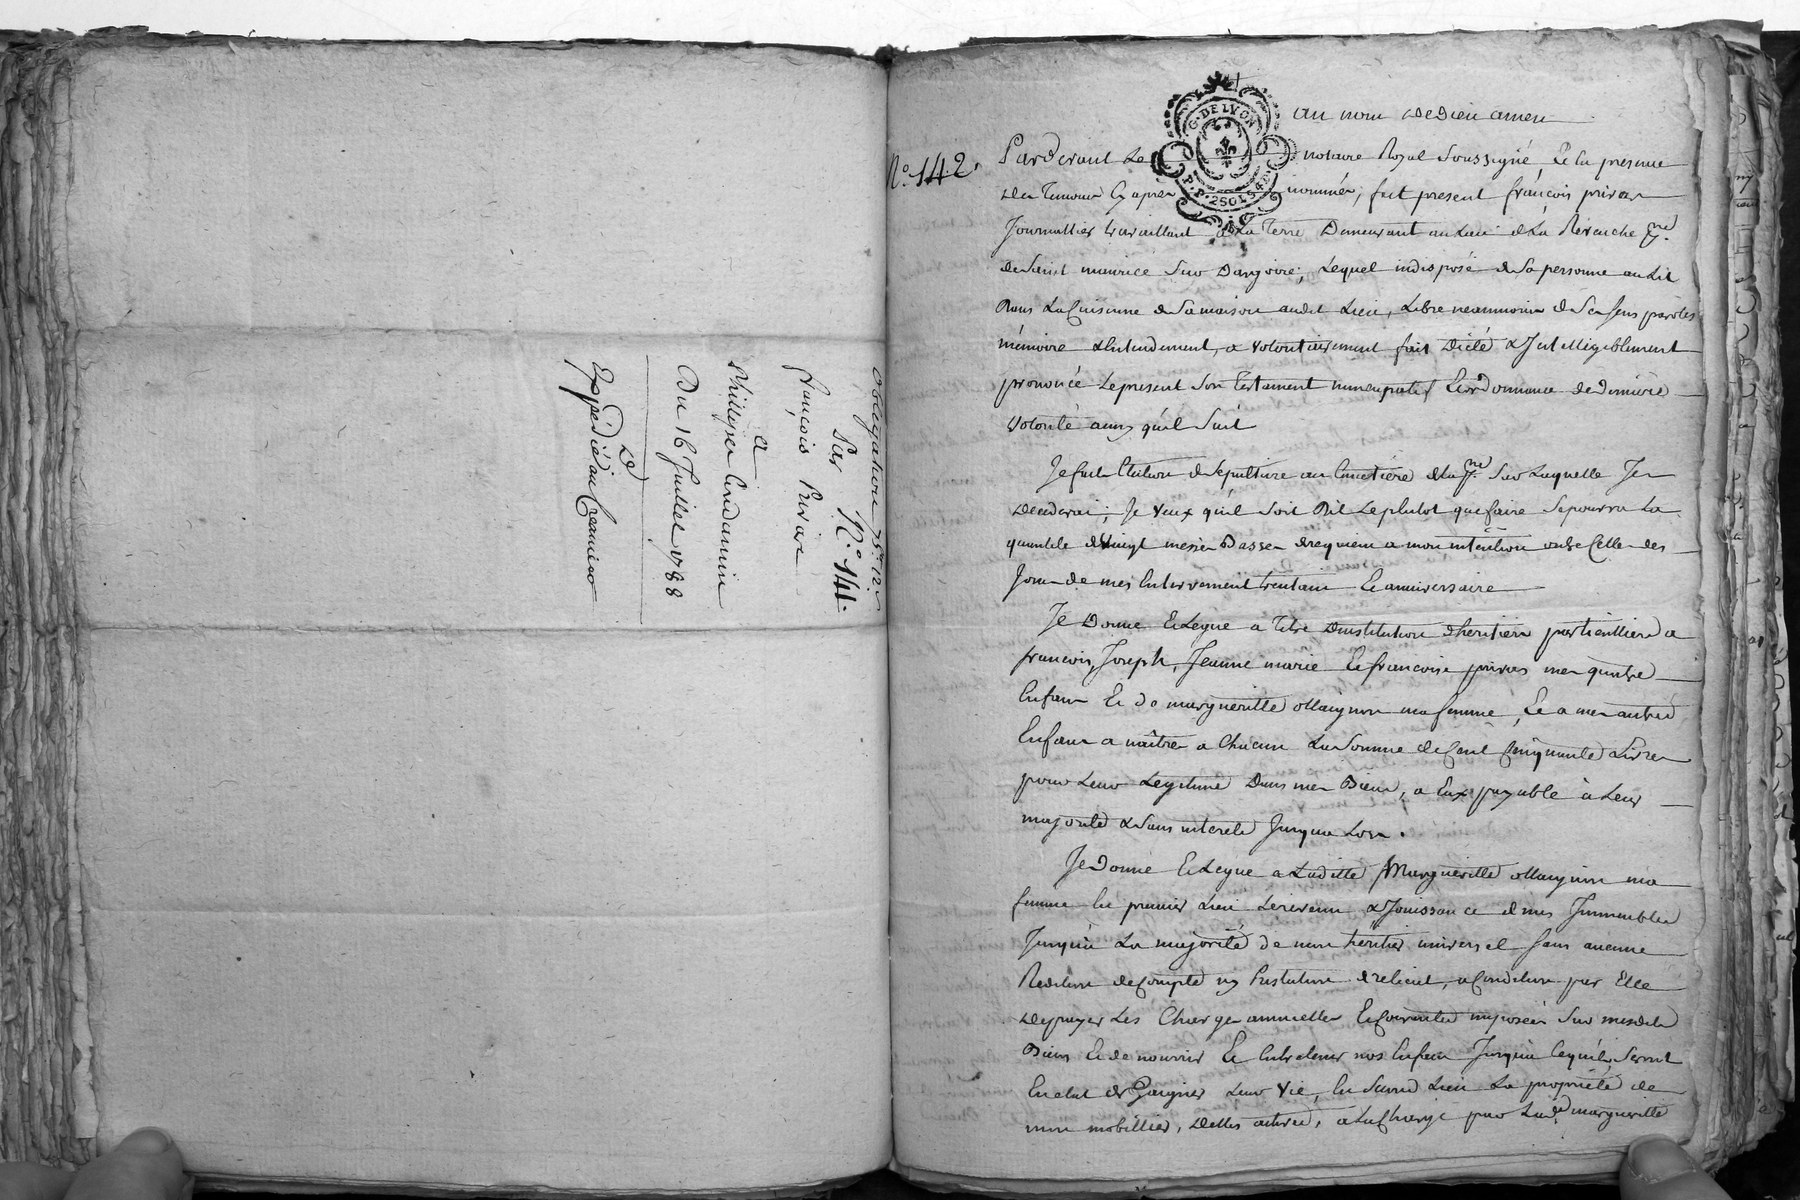 Obligation 75# 12s
Par N.º 141.
françois Privas
a
Phillipe Condamine
Du 16 Juillet 1788
Expédié au Creancier
G. DE LYON
P.P. 2 SOLS 4 D.
au nom de Dieu amen
Nº. 142.
Pardevant Le notaire Royal soussigné, Et En presence
des Temoins Cy après nommés; fut present françois privas
Journallier travaillant a La Terre Demeurant au Lieu de La Revauche psse
de Saint maurice Sur Dargoire; Lequel indisposé de Sa personne au Lit
Dans La Cuisinne de Sa maison audit Lieu, Libre neanmoins de Ses sens paroles
mémoire & Entendement, a volontairement fait Dicté & Intelligiblement
prononcé Le present Son Testament nuncupatif Et ordonnance de derniere
volonté ainsy qu'il Suit
Je fais Election de Sepulture au Cimetiere de La psse Sur Laquelle Je
Decederai; Je veux qu'il Soit Dit Le plutot que faire Se pourra La
quantité de vingt messes Basses de requiem a mon intention outre Celles des
Jours de mes Enterrement trentain Et anniversaire
Je Donne Et Legue a Titre D'institution d'heritiers particulliers a
francois, Joseph, Jeanne marie Et francoise privas mes quatre
Enfans Et de margueritte Maignin ma femme, Et a mes autres
Enfans a naître a Chacun La Somme de Cent Cinquante Livres
pour Leur Legitime Dans mes Biens, a Eux payable à Leur
majorité & Sans interets Jusqu'a Lors.
Je Donne Et Legue a Laditte Margueritte Maignin ma
femme En premier Lieu Les revenus & Jouissance de mes Immeubles
Jusqu'à La majorité de mon héritier universel Sans aucune
Reddition de Compte ny Prestation de reliquat, a Condition par Elle
De payer Les Charges annuelles Et Courantes imposées Sur mesdits
Biens Et de nourrir Et Entretenir nos Enfans Jusqu'a Ce qu'ils Seront
En etat de Gaigner Leur vie, En Second Lieu La propriété de
mon mobillier, Dettes actives, a La Charge par Lade margueritte